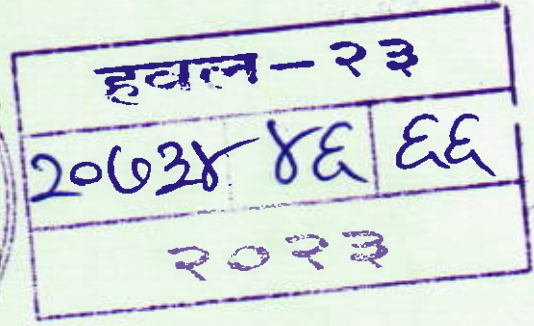 हवल - २३
२०७३४ ४६ ६६
२०२३